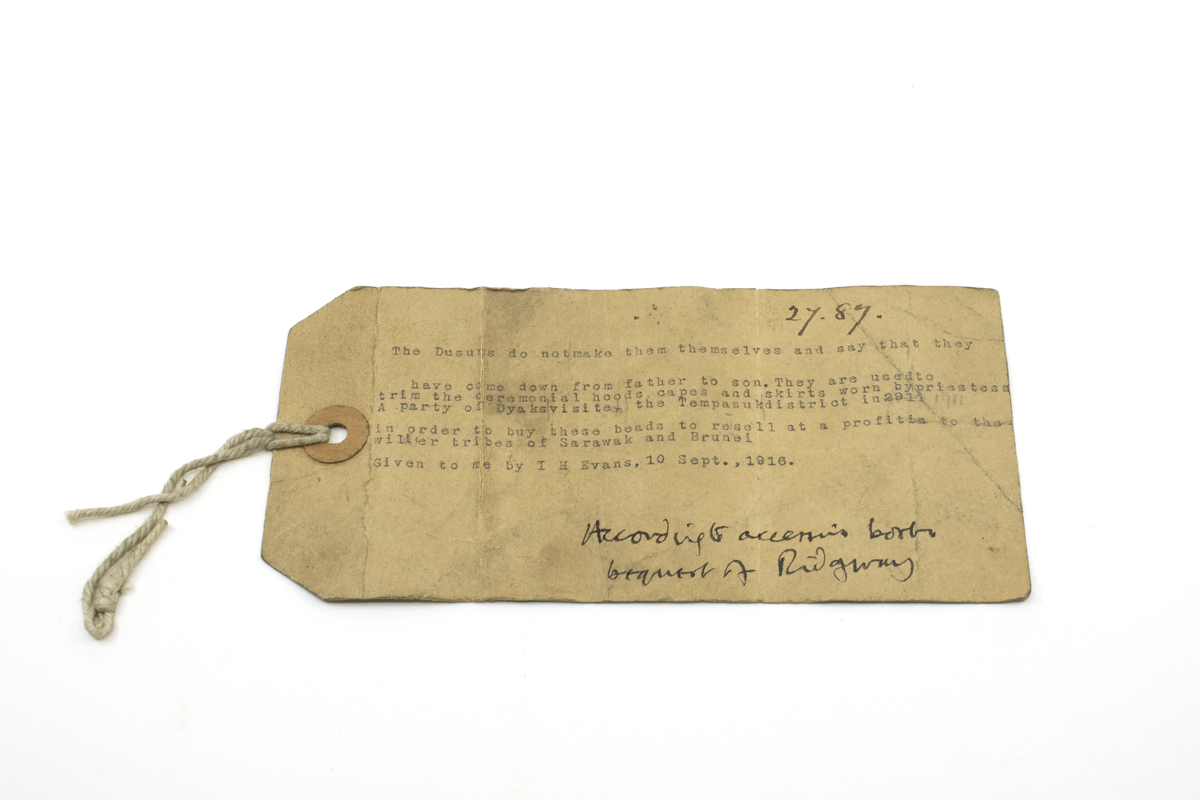 27.87.
The Dusuns do notmake them themselves and say that they
have come down from father to son.They are usedto
trim the ceremonial hoods capes and skirts worn bypriestess
A party of Dyaksvisited the Tempasukdistrict in2911 1911
in order to buy these beads to resell at a profitin to the
wilder tribes of Sarawak and Brunei
Given to me by I H Evans, 10 Sept.,1916.
According to accession books
bequest of Ridgway